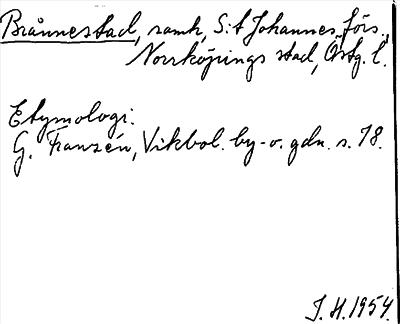 Brånnestad, samh., S:t Johannes förs.,
Norrköpings stad, Östg. l.
Etymologi.
G. Franzén, Vikbol. by- o. gdn. s. 78.
J. H. 1954.